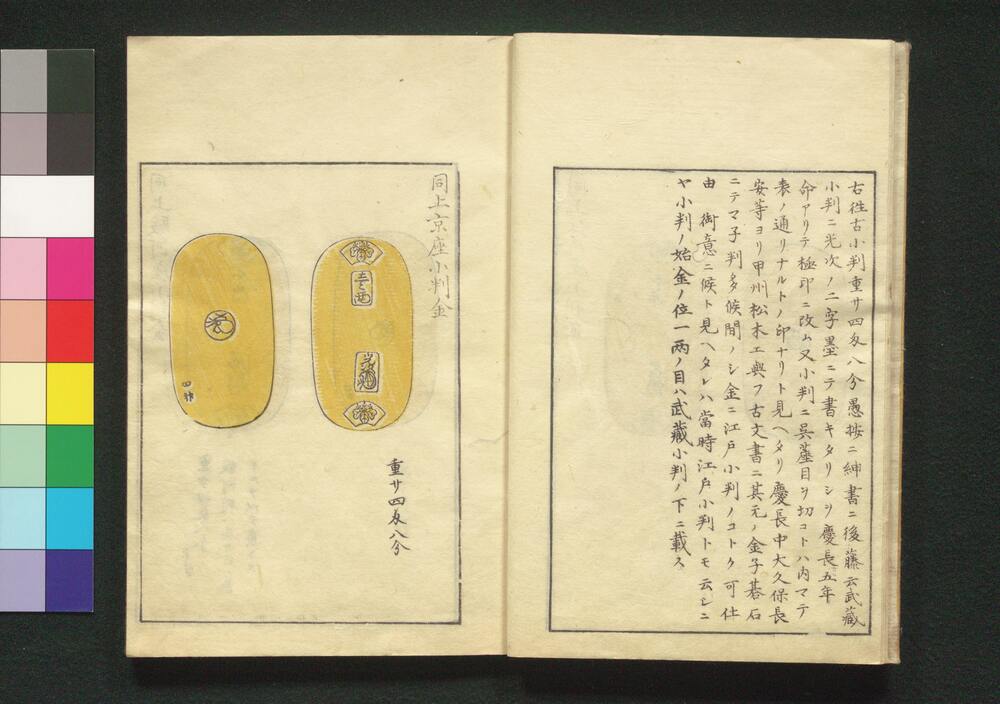 右往古小判重サ四匁八分愚按ニ紳書ニ後藤云武藏
小判ニ光次ノ二字墨ニテ書キタリシヲ慶長五年
命アリテ極印ニ改ム又小判ニ呉蓙目ヲ切コトハ内マテ
表ノ通リナルトノ印ナリト見ヘタリ慶長中大久保長
安等ヨリ甲州松木工與フ古文書ニ其元ノ金子碁石
ニテマ子判多候間ノシ金ニ江戸小判ノコトク可仕
由 御意ニ候ト見ヘタレハ當時江戸小判トモ云シニ
ヤ小判ノ始金ノ位一兩ノ目ハ武藏小判ノ下ニ載ス
同上京座小判金
壹兩
光次
重サ四匁八分